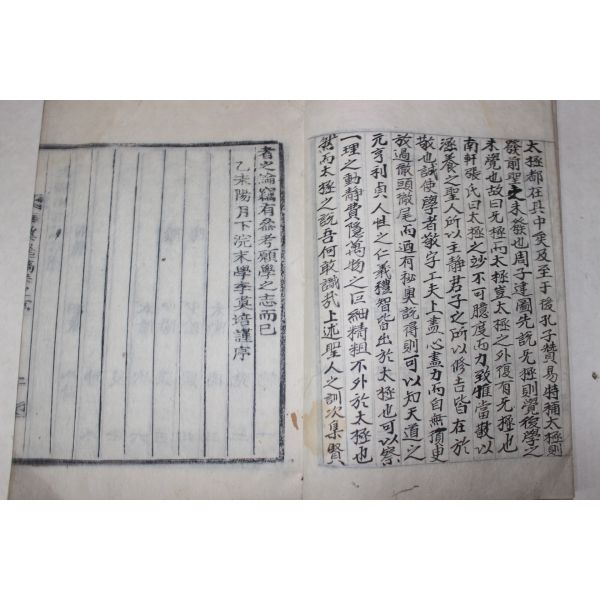 太極都在其中矣及至于後孔子贊易特稱太極則
發前聖之未發也周子建圖先說无極則覺後學之
未覺也故曰无極而太極豈太極之外復有无極也
南軒張氏曰太極之妙不可臆度而力致惟當敬以
涵養之聖人所以主靜君子之所以修吉皆在於
敬也誠使學者敬字工夫上盡心盡力而自無頃更
放過徹頭徹尾而道有秘奧說得則可以知天道之
元亨利貞人性之仁義禮智皆出於太極也可以察
一理之動靜費隱萬物之巨細精粗不外於太極也
然而太極之說吾何敢識哉上述聖人之訓次集賢
者之論竊有參考願學之志而已
乙未陽月下浣末學李 培謹序